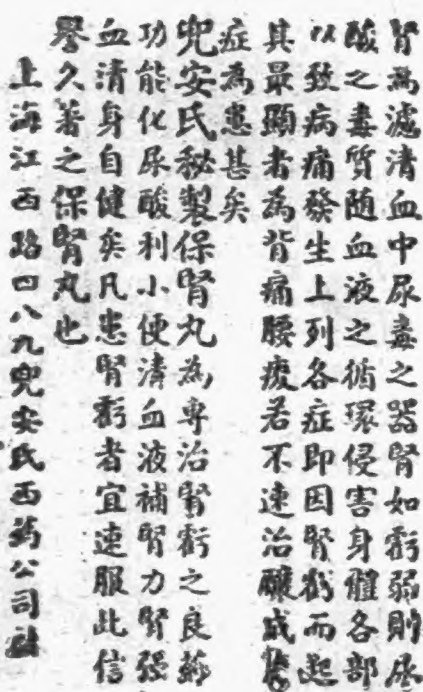 腎為濾清血中尿毒之器腎如虧弱則尿
酸之毒質随血液之循環侵害身體各部
以致病痛發生上列各症即因腎虧而起
其最顯者為背痛腰痠若不速治釀成
症為患甚矣
兜安氏秘製保腎丸為專治腎虧之良藥
功能化尿酸利小便清血液補腎力腎强
血清身自健矣凡患腎虧者宜速服此信
譽久著之保腎丸也
上海江西路四八九兜安氏西药公司